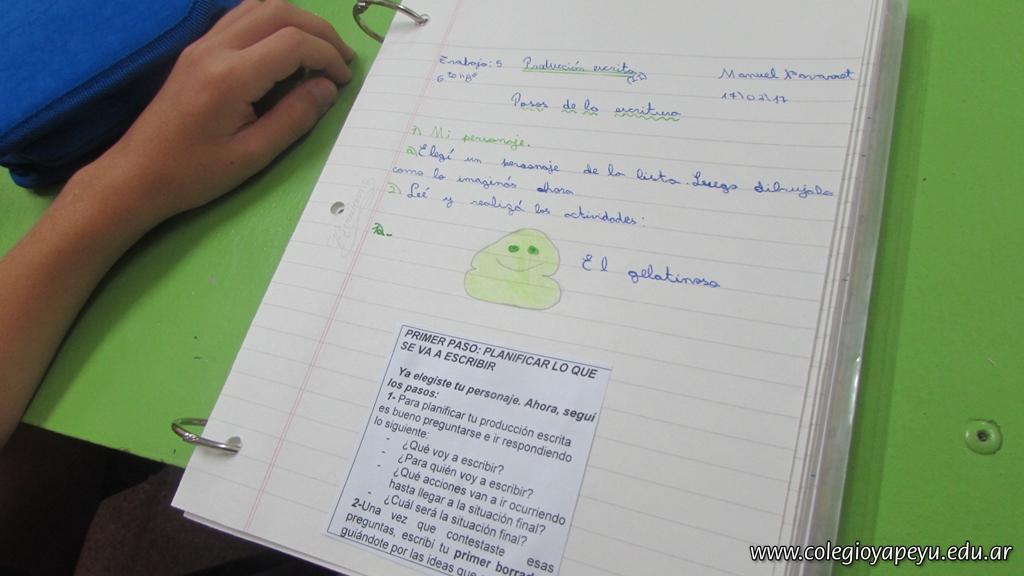 Trabajo: 5 Producción escrita Manuel Navarret
6to "B" 17/03/17
Pasos de la escritura
1) Mi personaje.
a) Elegí un personaje de la lista. Luego dibujalo
como lo imaginás ahora
2) Leé y realizá las actividades:
El gelatinoso
PRIMER PASO: PLANIFICAR LO QUE
SE VA A ESCRIBIR
Ya elegiste tu personaje. Ahora, seguí
los pasos:
1- Para planificar tu producción escrita
es bueno preguntarse e ir respondiendo
lo siguiente:
- ¿Qué voy a escribir?
- ¿Para quién voy a escribir?
- ¿Qué acciones van a ir ocurriendo
hasta llegar a la situación final?
- ¿Cuál será la situación final?
2-Una vez que contestaste esas
preguntas, escribí tu primer borrad
guiándote por las ideas que
www.colegioyapeyu.edu.ar